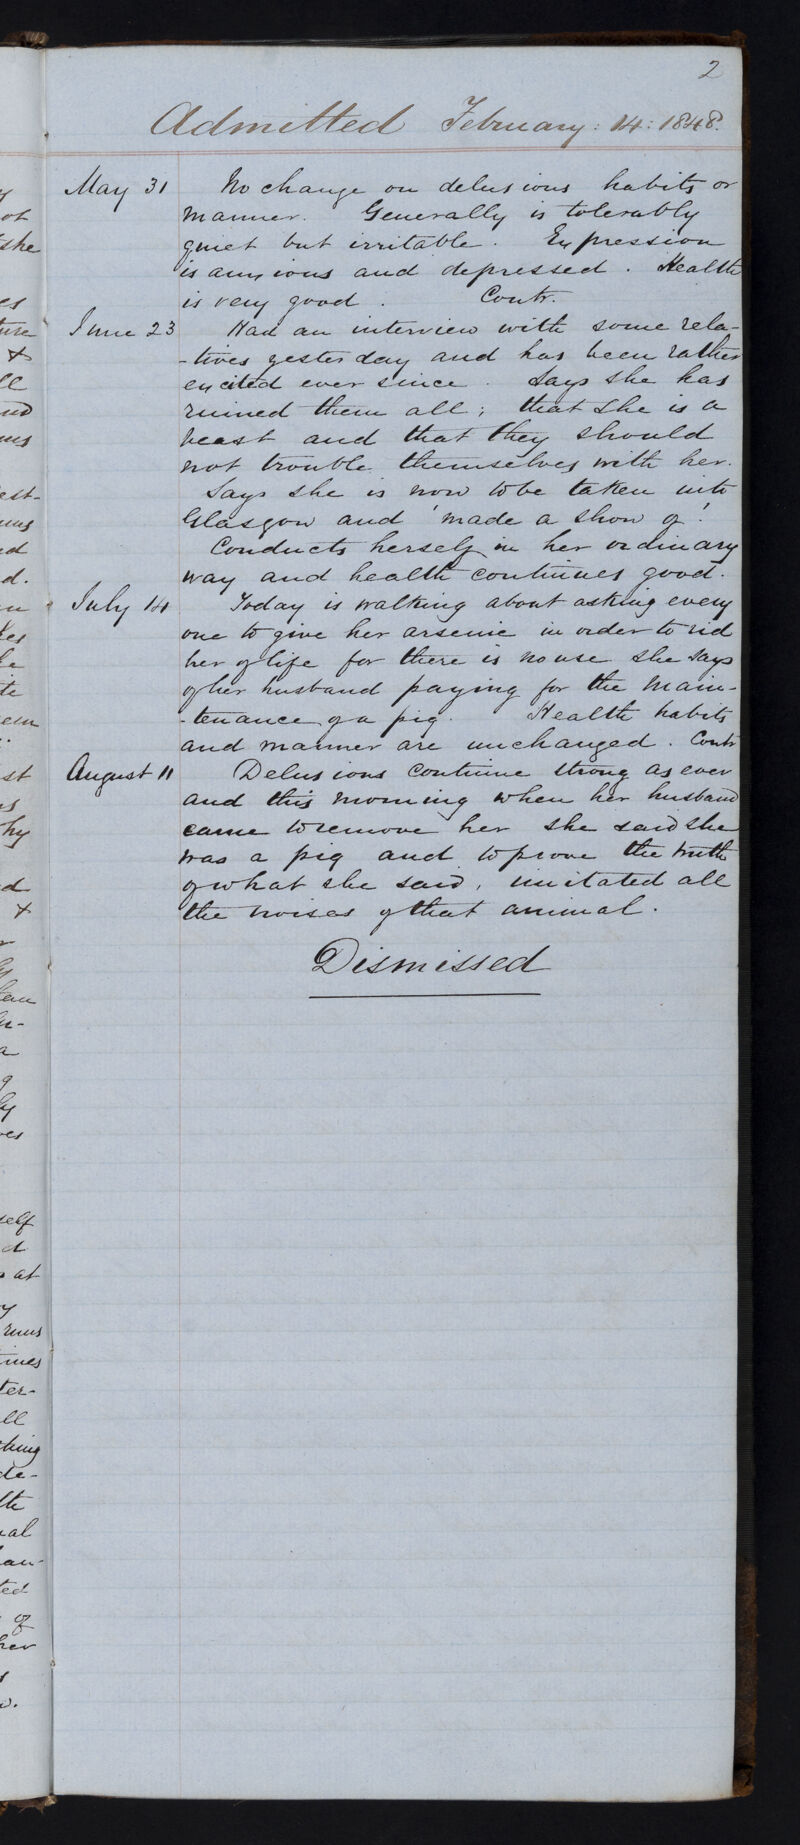 2
Admitted February: 14: 1848.
May 31 No change on delusions habits or
manner. Generally is tolerably
quiet but irritable. Expression
is anxious and depressed. Health
is very good. Contr.
June 23 Had an interview with some rela-
-tives yesterday and has been rather
excited ever since. Says she has
ruined them all; that she is a
beast and that they should
not trouble themselves with her.
Says she is now to be taken into
Glasgow and 'made a show of'.
Conducts herself in her ordinary
way and health continues good.
July 14 Today is walking about asking every
one to give her arsenic in order to rid
her of life for there is no use she says
of her husband paying for the main-
-tenance of a pig. Health habits
and manner are unchanged. Contr
August 11 Delusions continue strong as ever
and this morning when her husband
came to remove her she said she
was a pig and to prove the truth
of what she said, imitated all
the noises of that animal.
Dismissed